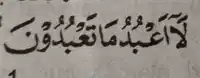 لَآ اَعْبُدُ مَا تَعْبُدُوْنَ